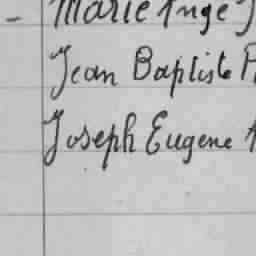 - Marie Ange J
Jean Baptiste P
Joseph Eugene